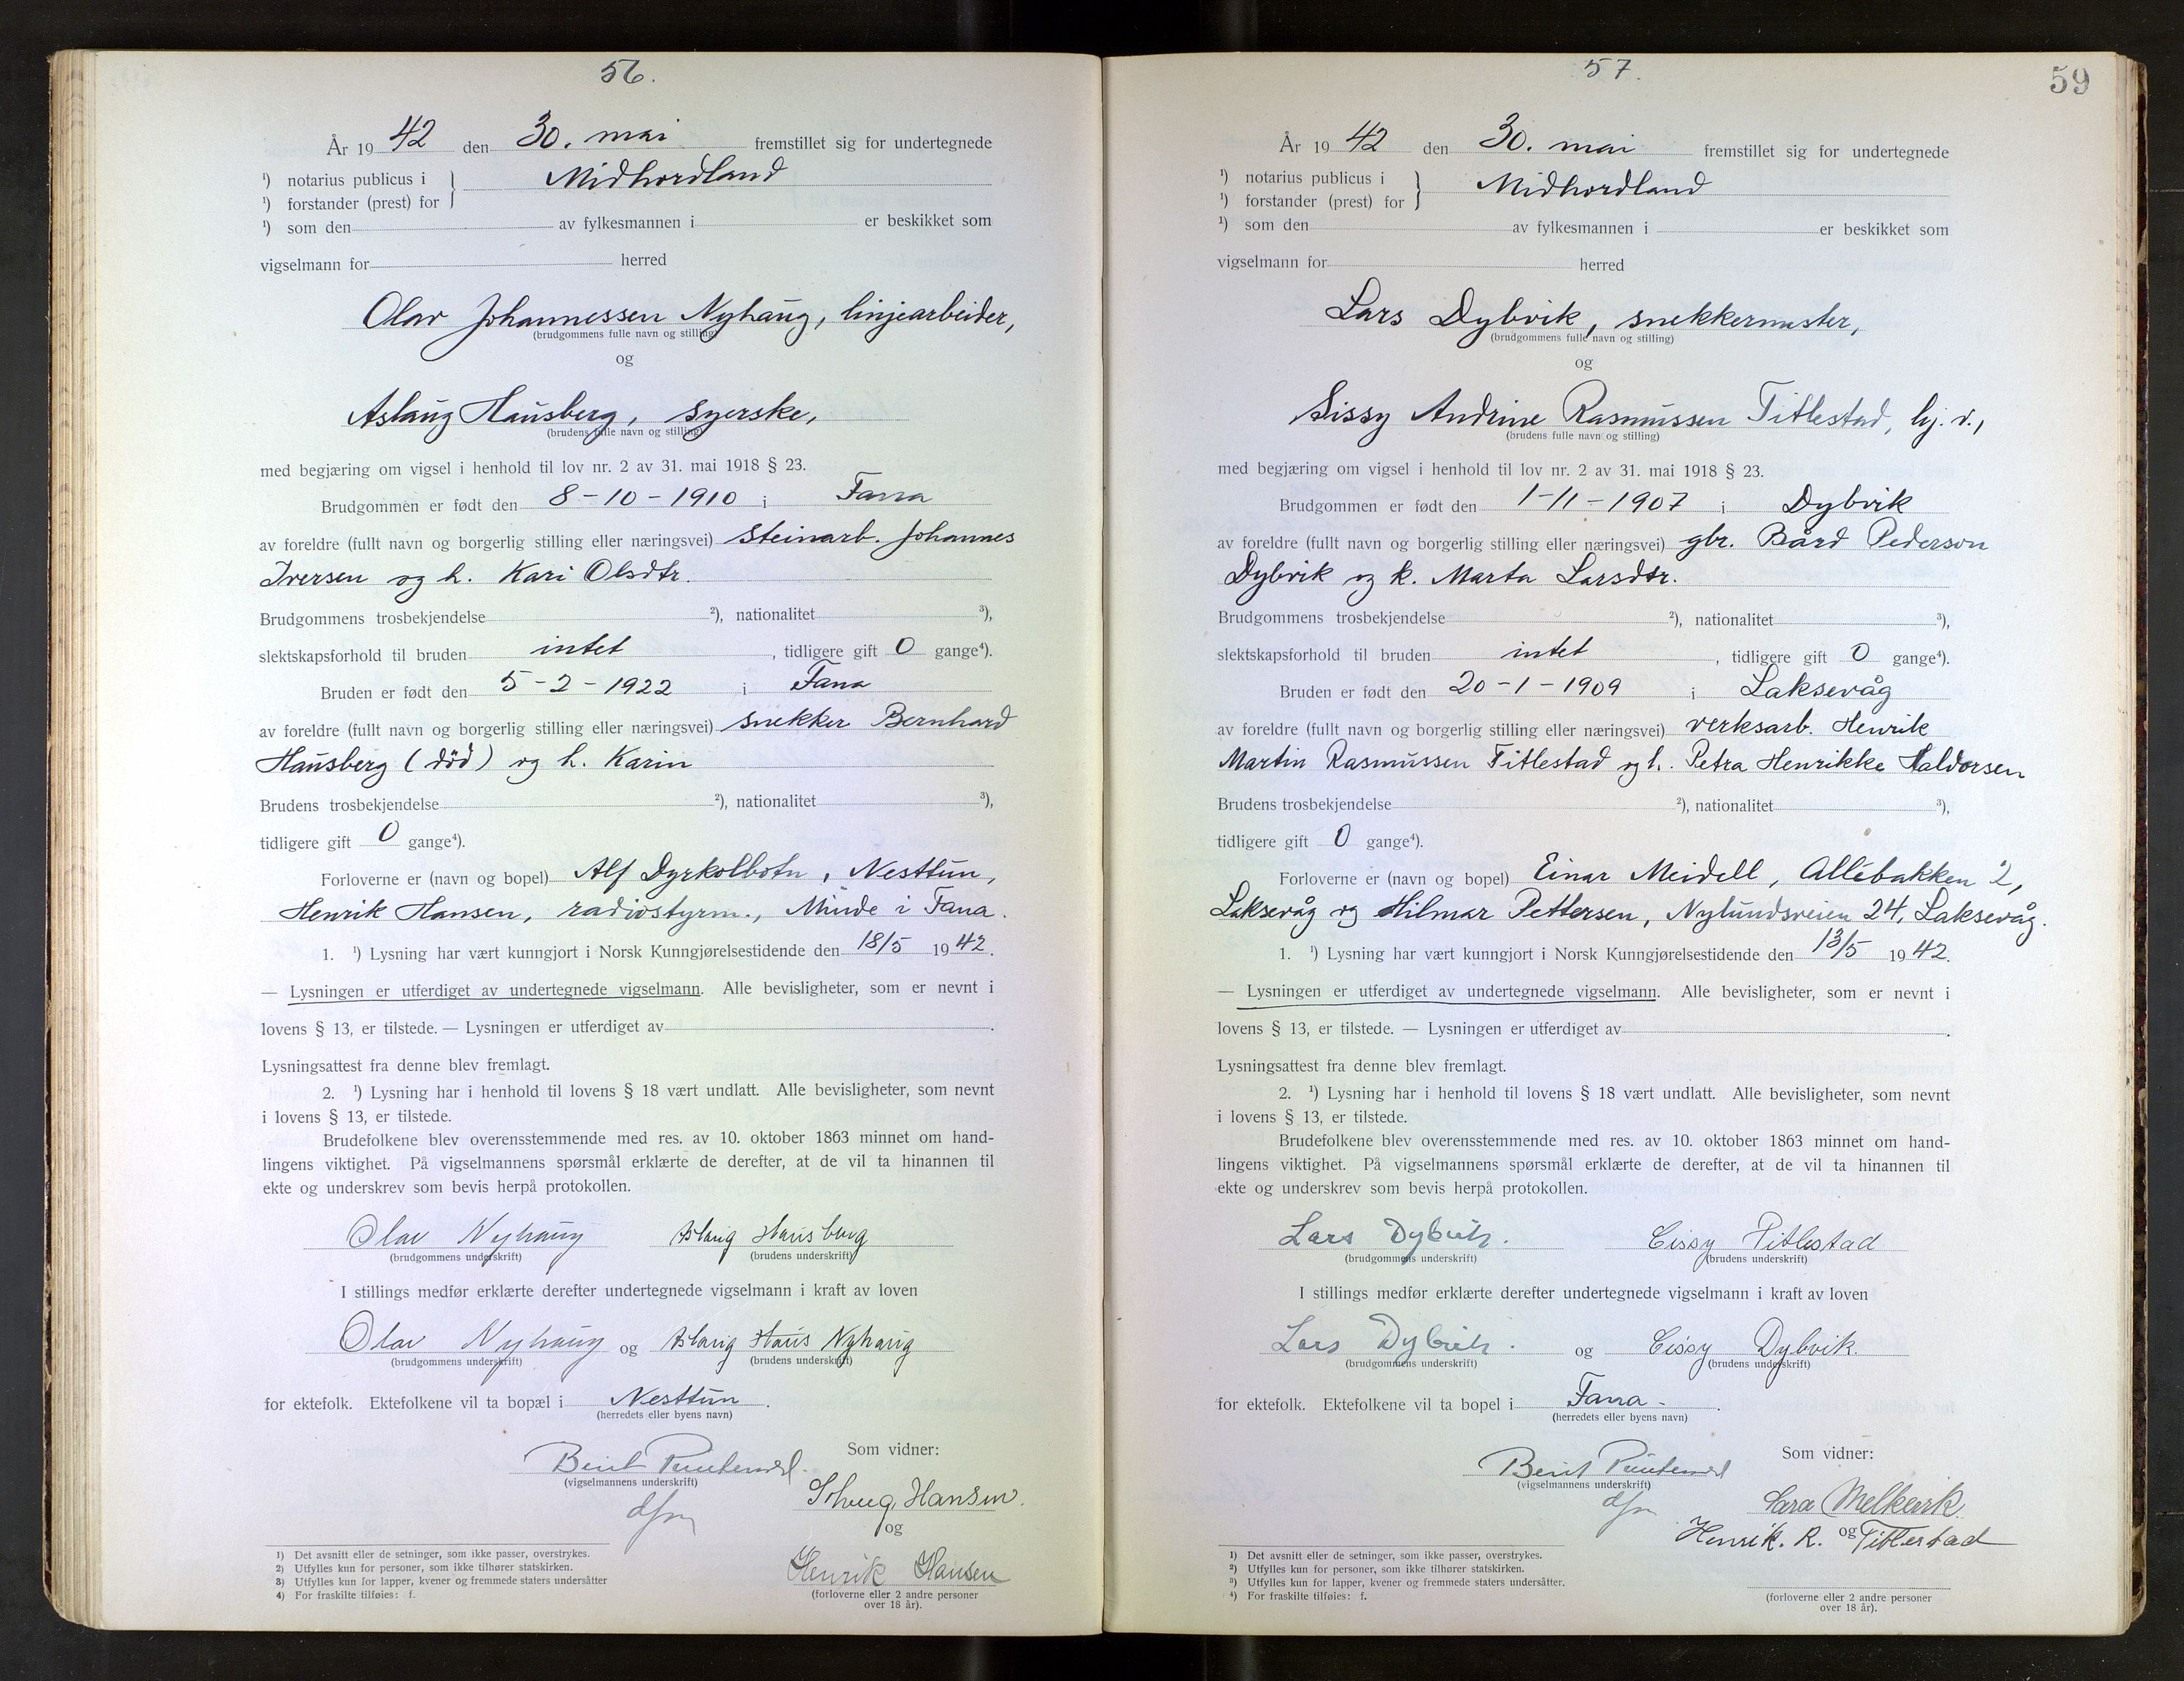 56.
År 1942 den 30. mai fremstillet sig for undertegnede
¹) notarius publicus i } Midhordland
¹) forstander (prest) for
¹) som den av fylkesmannen i er beskikket som
vigselmann for herred
Olav Johannessen Nyhaug, linjearbeider,
(brudgommens fulle navn og stilling)
og
Aslaug Hausberg, syerske,
(brudens fulle navn og stilling)
med begjæring om vigsel i henhold til lov nr. 2 av 31. mai 1918 § 23.
Brudgommen er født den 8-10-1910 i Fana
av foreldre (fullt navn og borgerlig stilling eller næringsvei) steinarb. Johannes
Iversen og h. Kari Olsdtr.
Brudgommens trosbekjendelse ²), nationalitet ³),
slektskapsforhold til bruden intet, tidligere gift 0 gange⁴).
Bruden er født den 5-2-1922 i Fana
av foreldre (fullt navn og borgerlig stilling eller næringsvei) snekker Bernhard
Hausberg (död) og h. Karin
Brudens trosbekjendelse ²), nationalitet ³),
tidligere gift 0 gange⁴).
Forloverne er (navn og bopel) Alf Dyrkolbotn, Nesttun,
Henrik Hansen, radiostyrm., Minde i Fana.
1. ¹) Lysning har vært kunngjort i Norsk Kunngjørelsestidende den 18/5 1942.
— Lysningen er utferdiget av undertegnede vigselmann. Alle bevisligheter, som er nevnt i
lovens § 13, er tilstede. — Lysningen er utferdiget av .
Lysningsattest fra denne blev fremlagt.
2. ¹) Lysning har i henhold til lovens § 18 vært undlatt. Alle bevisligheter, som nevnt
i lovens § 13, er tilstede.
Brudefolkene blev overensstemmende med res. av 10. oktober 1863 minnet om hand-
lingens viktighet. På vigselmannens spørsmål erklærte de derefter, at de vil ta hinannen til
ekte og underskrev som bevis herpå protokollen.
Olav Nyhaug Aslaug Hausberg
(brudgommens underskrift) (brudens underskrift)
I stillings medfør erklærte derefter undertegnede vigselmann i kraft av loven
Olav Nyhaug og Aslaug Haus Nyhaug
(brudgommens underskrift) (brudens underskrift)
for ektefolk. Ektefolkene vil ta bopæl i Nesttun.
(herredets eller byens navn)
Som vidner:
Berit
(vigselmannens underskrift)
Solveig Hansen.
og
Henrik Hansen
(forloverne eller 2 andre personer
over 18 år).
1) Det avsnitt eller de setninger, som ikke passer, overstrykes.
2) Utfylles kun for personer, som ikke tilhører statskirken.
3) Utfylles kun for lapper, kvener og fremmede staters undersåtter
4) For fraskilte tilføies: f.
57.
59
År 1942 den 30. mai fremstillet sig for undertegnede
¹) notarius publicus i } Midhordland
¹) forstander (prest) for
¹) som den av fylkesmannen i er beskikket som
vigselmann for herred
Lars Dybvik, snekkermester,
(brudgommens fulle navn og stilling)
og
Sissy Andrine Rasmussen Titlestad, hj. v.,
(brudens fulle navn og stilling)
med begjæring om vigsel i henhold til lov nr. 2 av 31. mai 1918 § 23.
Brudgommen er født den 1-11-1907 i Dybvik
av foreldre (fullt navn og borgerlig stilling eller næringsvei) gbr. Bård Pederson
Dybvik og k. Marta Larsdtr.
Brudgommens trosbekjendelse ²), nationalitet ³),
slektskapsforhold til bruden intet, tidligere gift 0 gange⁴).
Bruden er født den 20-1-1909 i Laksevåg
av foreldre (fullt navn og borgerlig stilling eller næringsvei) verksarb. Henrik
Martin Rasmussen Titlestad og h. Petra Henrikke Haldorsen
Brudens trosbekjendelse ²), nationalitet ³),
tidligere gift 0 gange⁴).
Forloverne er (navn og bopel) Einar Meidell, Allébakken 2,
Laksevåg og Hilmar Pettersen, Nylundsveien 24, Laksevåg.
1. ¹) Lysning har vært kunngjort i Norsk Kunngjørelsestidende den 13/5 1942.
— Lysningen er utferdiget av undertegnede vigselmann. Alle bevisligheter, som er nevnt i
lovens § 13, er tilstede. — Lysningen er utferdiget av .
Lysningsattest fra denne blev fremlagt.
2. ¹) Lysning har i henhold til lovens § 18 vært undlatt. Alle bevisligheter, som nevnt
i lovens § 13, er tilstede.
Brudefolkene blev overensstemmende med res. av 10. oktober 1863 minnet om hand-
lingens viktighet. På vigselmannens spørsmål erklærte de derefter, at de vil ta hinannen til
ekte og underskrev som bevis herpå protokollen.
Lars Dybvik. Cissy Titlestad
(brudgommens underskrift) (brudens underskrift)
I stillings medfør erklærte derefter undertegnede vigselmann i kraft av loven
Lars Dybvik. og Cissy Dybvik.
(brudgommens underskrift) (brudens underskrift)
for ektefolk. Ektefolkene vil ta bopel i Fana.
(herredets eller byens navn)
Som vidner:
Berit
(vigselmannens underskrift)
Sara Melkevik.
Henrik. R. og Titlestad
(forloverne eller 2 andre personer
over 18 år).
1) Det avsnitt eller de setninger, som ikke passer, overstrykes.
2) Utfylles kun for personer, som ikke tilhører statskirken.
3) Utfylles kun for lapper, kvener og fremmede staters undersåtter.
4) For fraskilte tilføies: f.